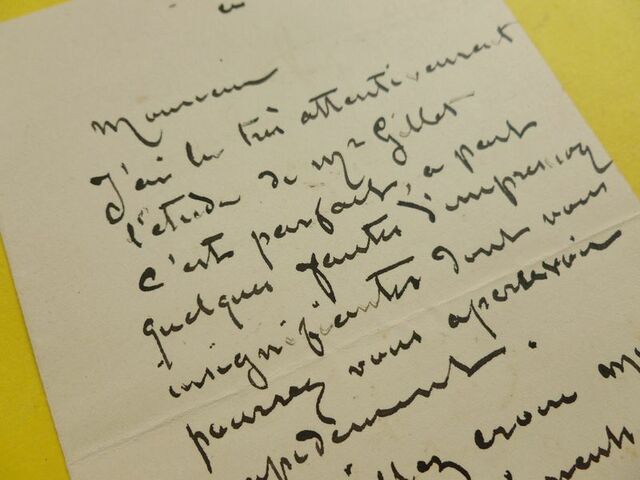 Monsieur
J'ai lu très attentivement
l'étude de Mr Gillet
c'est parfait, a part
quelques fautes d'impression
insignifiantes dont vous
pourrez vous apercevoir
rapidement.
croire